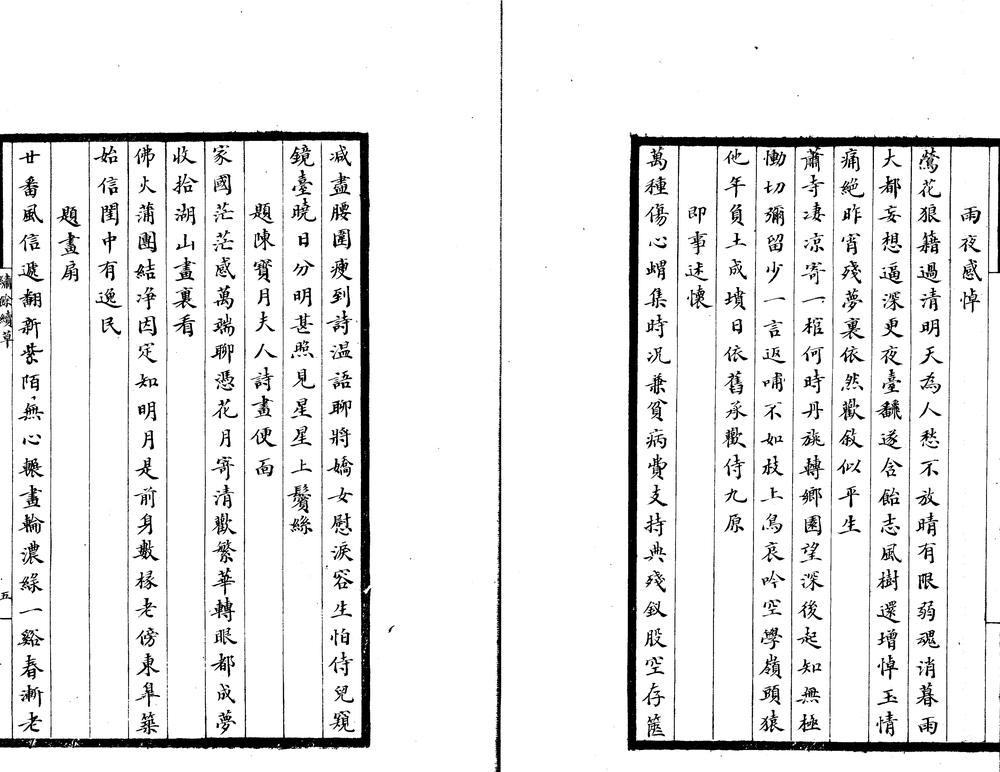 雨夜感悼
鶯花狼籍過清明天為人愁不放晴有限弱魂消暮雨
大都妄想逼深更夜臺飜遂含飴志風樹還增悼玉情
痛絕昨宵殘夢裏依然歡敘似平生
蕭寺凄凉寄一棺何時丹旐轉鄉園望深後起知無極
慟切彌留少一言返哺不如枝上鳥哀吟空學嶺頭猿
他年負土成墳日依舊承歡侍九原
即事述懷
萬種傷心蝟集時况兼貧病費支持典殘釵股空存篋
减盡腰圍瘦到詩温語聊將嬌女慰淚容生怕侍兒窺
鏡臺曉日分明甚照見星星上鬢絲
題陳寶月夫人詩畫便面
家國茫茫感萬端聊憑花月寄清歡繁華轉眼都成夢
收拾湖山畫裏看
佛火蒲團結净因定知明月是前身數椽老傍東臯築
始信閨中有逸民
題畫扇
廿番風信遞翻新紫陌無心輾畫輪濃綠一谿春漸老
繡餘續草
五